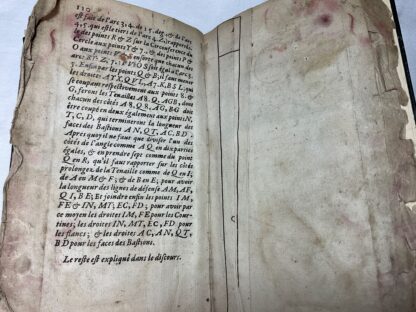 110
est fait de l'arc 3, 4. de 15. deg. & de l'arc
4, 5 que est le tiers de l'arc 4, Z, rapportés
des points R & Z sur la Circonference du
Cercle aux points T & 7. & des points P &
O aux points V & enforte que chacun des
arc: R P, Z, 7. PV O S soit égal à l'arc 3
5. Enfin par les points Q & B, il faut mener
les droites ATX, QVL, A7. K, BSL, qui
se coupant respectivement aux points 8, &
G, feront les Tenailles A8. Q, AGB, dont
chacun des côtéz A8, Q8, AG, BG doit
être coupé en deux également aux points N,
T, C, D, qui termineront la longueur des
faces des Bastions AN, QT, AC, BD.
Apres quoy il ne faut que diviser l'un des
côtés de l'angle comme AQ en dix parties
égales, & en prendre sept comme du point
Q en R, qu'il faut rapporter sur les côtés
prolongez de la Tenaille de Q en I; &
de A en M & F; & de B en E; pour avoir
la longueur des lignes de défense AM, AF,
QI, BE; Et joindre enfin les points IM,
FE & IN, MT; EC, FD; pour avoir par
ce moyen les droites IM, FE pour les Cour-
tines; les droites IN, MT, EC, FD
pour les flancs; & les droites AC, AN, QT,
BD pour les faces des Bastions.
Le reste est expliqué dans le discours.